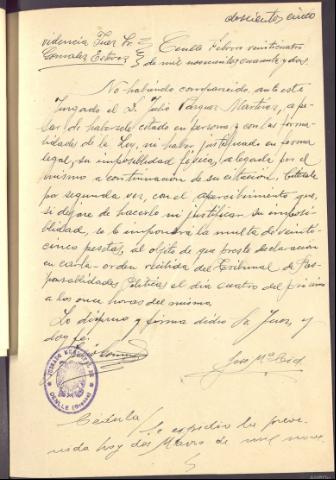 doscientos cinco
videncia Juez Sr. Cenlle Febrero veinticuatro
Gonzalez Estevez de mil novecientos cuarenta y dos.
No habiendo comparecido ante este
Juzgado el D. Julio Vazquez Martinez, a pe-
sar de haber sido citado en persona y con las forma-
lidades de la Ley, ni haber justificado en forma
legal, su imposibilidad física, alegada por el
mismo a continuacion de su citación, citesele
por segunda vez, con el apercibimiento que,
si dejare de hacerlo ni justificar su imposi-
bilidad, se le impondrá la multa de veinti-
cinco pesetas, al objeto de que preste declaracion
en carta-orden recibida del Tribunal de Res-
ponsabilidades Politicas el dia cuatro del próximo
a las once horas del mismo.
Lo dispuso y firma dicho Sr. Juez, y
doy fé.
José Mª
JUZGADO MUNICIPAL DE
CENLLE (Orense)
Cédula/ Se expidió la preve-
nida hoy dos Marzo de mil nove